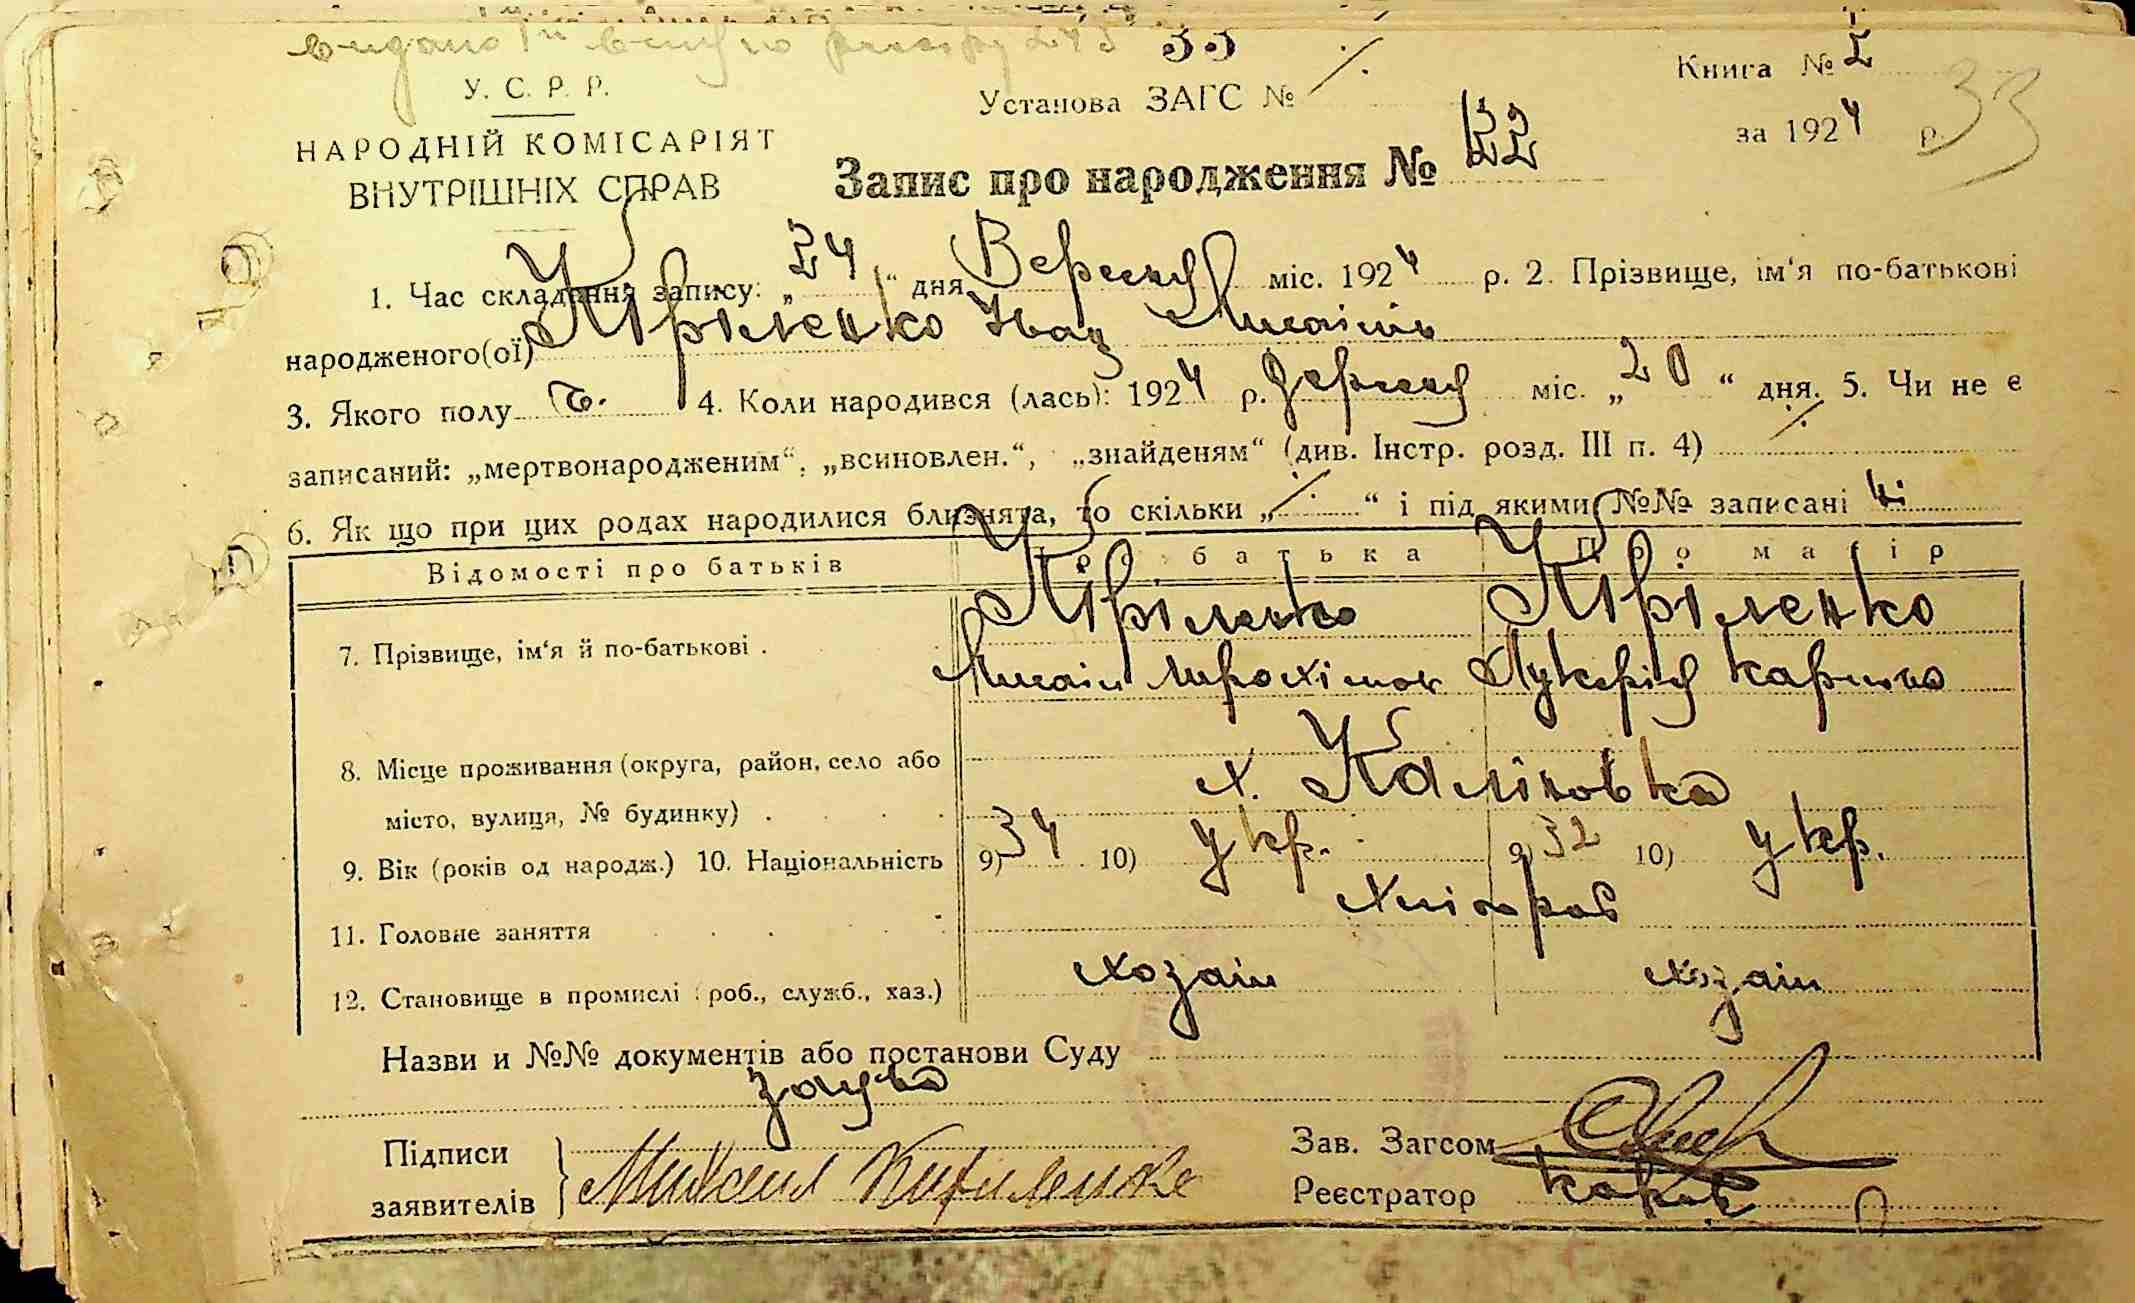 33
У. С. Р. Р.
Установа ЗАГС № ⁒
Книга №
за 1924 р. 33
НАРОДНІЙ КОМІСАРІЯТ
ВНУТРІШНІХ СПРАВ
Запис про народження №
1. Час складання запису: „24“ дня Вересня міс. 1924 р. 2. Прізвище, ім‘я по-батькові
народженого(ої) Кіріленко Іван
3. Якого полу ч. 4. Коли народився (лась): 1924 р. Вересня міс. „20“ дня. 5. Чи не є
записаний: „мертвонародженим“, „всиновлен.“, „знайденям“ (див. Інстр. розд. III п. 4) ⁒
6. Як що при цих родах народилися близнята, то скільки „⁒“ і під якими №№ записані
Відомості про батьків Про батька Про матір
7. Прізвище, ім‘я й по-батькові . Кіріленко Кіріленко
Лукерія
8. Місце проживання (округа, район, село або
місто, вулиця, № будинку) . х. Калініовка
9. Вік (років од народж.) 10. Національність 9) 34 10) укр. 9) 32 10) укр.
11. Головне заняття Хлібороб
12. Становище в промислі (роб., служб., хаз.) хозаін хозаін
Назви и №№ документів або постанови Суду
заява
Підписи
заявителів Михаил Кириленко
Зав. Загсом
Реєстратор